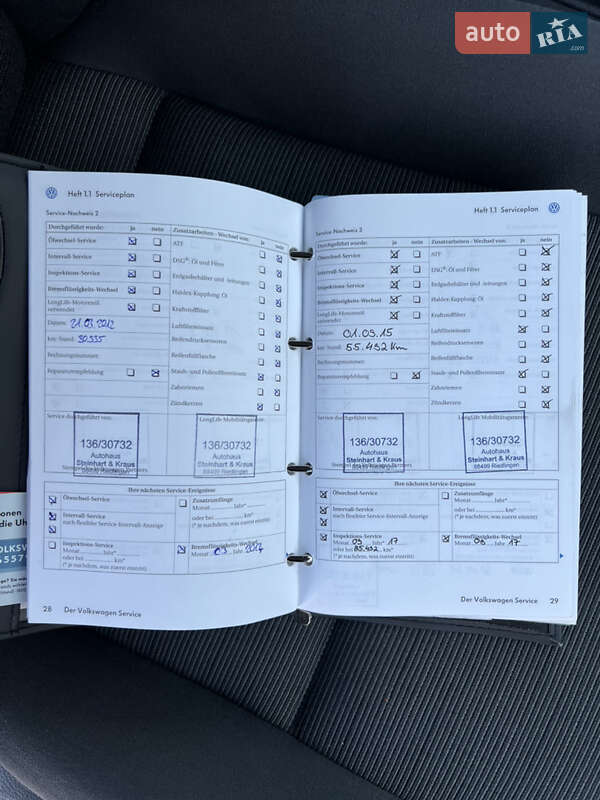 auto RIA .com
Heft 1.1 Serviceplan
Service-Nachweis 2
Durchgeführt wurde: ja nein Zusatzarbeiten - Wechsel von: ja nein
Ölwechsel-Service ATF
Intervall-Service DSG®-Öl und Filter
Inspektions-Service Erdgasbehälter und -leitungen
Bremsflüssigkeits-Wechsel Haldex-Kupplung-Öl
LongLife-Motorenöl verwendet Kraftstofffilter
Datum: 21.03.2012 Luftfiltereinsatz
km-Stand: 30.335 Reifendrucksensoren
Rechnungsnummer: Reifenfüllflasche
Reparaturempfehlung Staub- und Pollenfiltereinsatz
Zahnriemen
Zündkerzen
Service durchgeführt von: LongLife Mobilitätsgarantie
136/30732 136/30732
Autohaus Autohaus
Steinhart & Kraus Steinhart & Kraus
88499 Riedlingen 88499 Riedlingen
Ihre nächsten Service-Ereignisse
Ölwechsel-Service Zusatzumfänge
Intervall-Service Monat Jahr*
nach flexibler Service-Intervall-Anzeige oder bei km*
(* je nachdem, was zuerst eintritt)
Inspektions-Service Bremsflüssigkeits-Wechsel
Monat Jahr* Monat 03 Jahr
oder bei km*
(* je nachdem, was zuerst eintritt)
28 Der Volkswagen Service
Heft 1.1 Serviceplan
Service-Nachweis 3
Durchgeführt wurde: ja nein Zusatzarbeiten - Wechsel von: ja nein
Ölwechsel-Service ATF
Intervall-Service DSG®-Öl und Filter
Inspektions-Service Erdgasbehälter und -leitungen
Bremsflüssigkeits-Wechsel Haldex-Kupplung-Öl
LongLife-Motorenöl verwendet Kraftstofffilter
Datum: 01.09.15 Luftfiltereinsatz
km-Stand: 55.492 km Reifendrucksensoren
Rechnungsnummer: Reifenfüllflasche
Reparaturempfehlung Staub- und Pollenfiltereinsatz
Zahnriemen
Zündkerzen
Service durchgeführt von: LongLife Mobilitätsgarantie
136/30732 136/30732
Autohaus Autohaus
Steinhart & Kraus Steinhart & Kraus
88499 Riedlingen 88499 Riedlingen
Ihre nächsten Service-Ereignisse
Ölwechsel-Service Zusatzumfänge
Intervall-Service Monat Jahr*
nach flexibler Service-Intervall-Anzeige oder bei km*
(* je nachdem, was zuerst eintritt)
Inspektions-Service Bremsflüssigkeits-Wechsel
Monat 09 Jahr* 17 Monat 09 Jahr 17
oder bei 85.492 km*
(* je nachdem, was zuerst eintritt)
Der Volkswagen Service 29